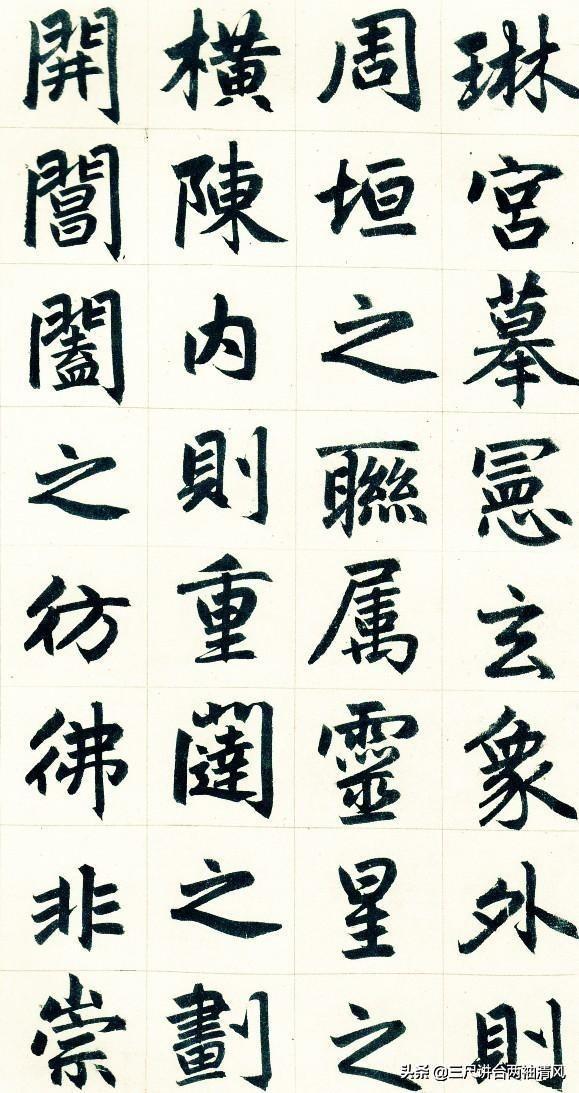 琳宮摹憲玄象外則
周垣之聯属靈星之
橫陳内則重闥之劃
開閶闔之彷彿非崇
头条 @三尺讲台两袖清风